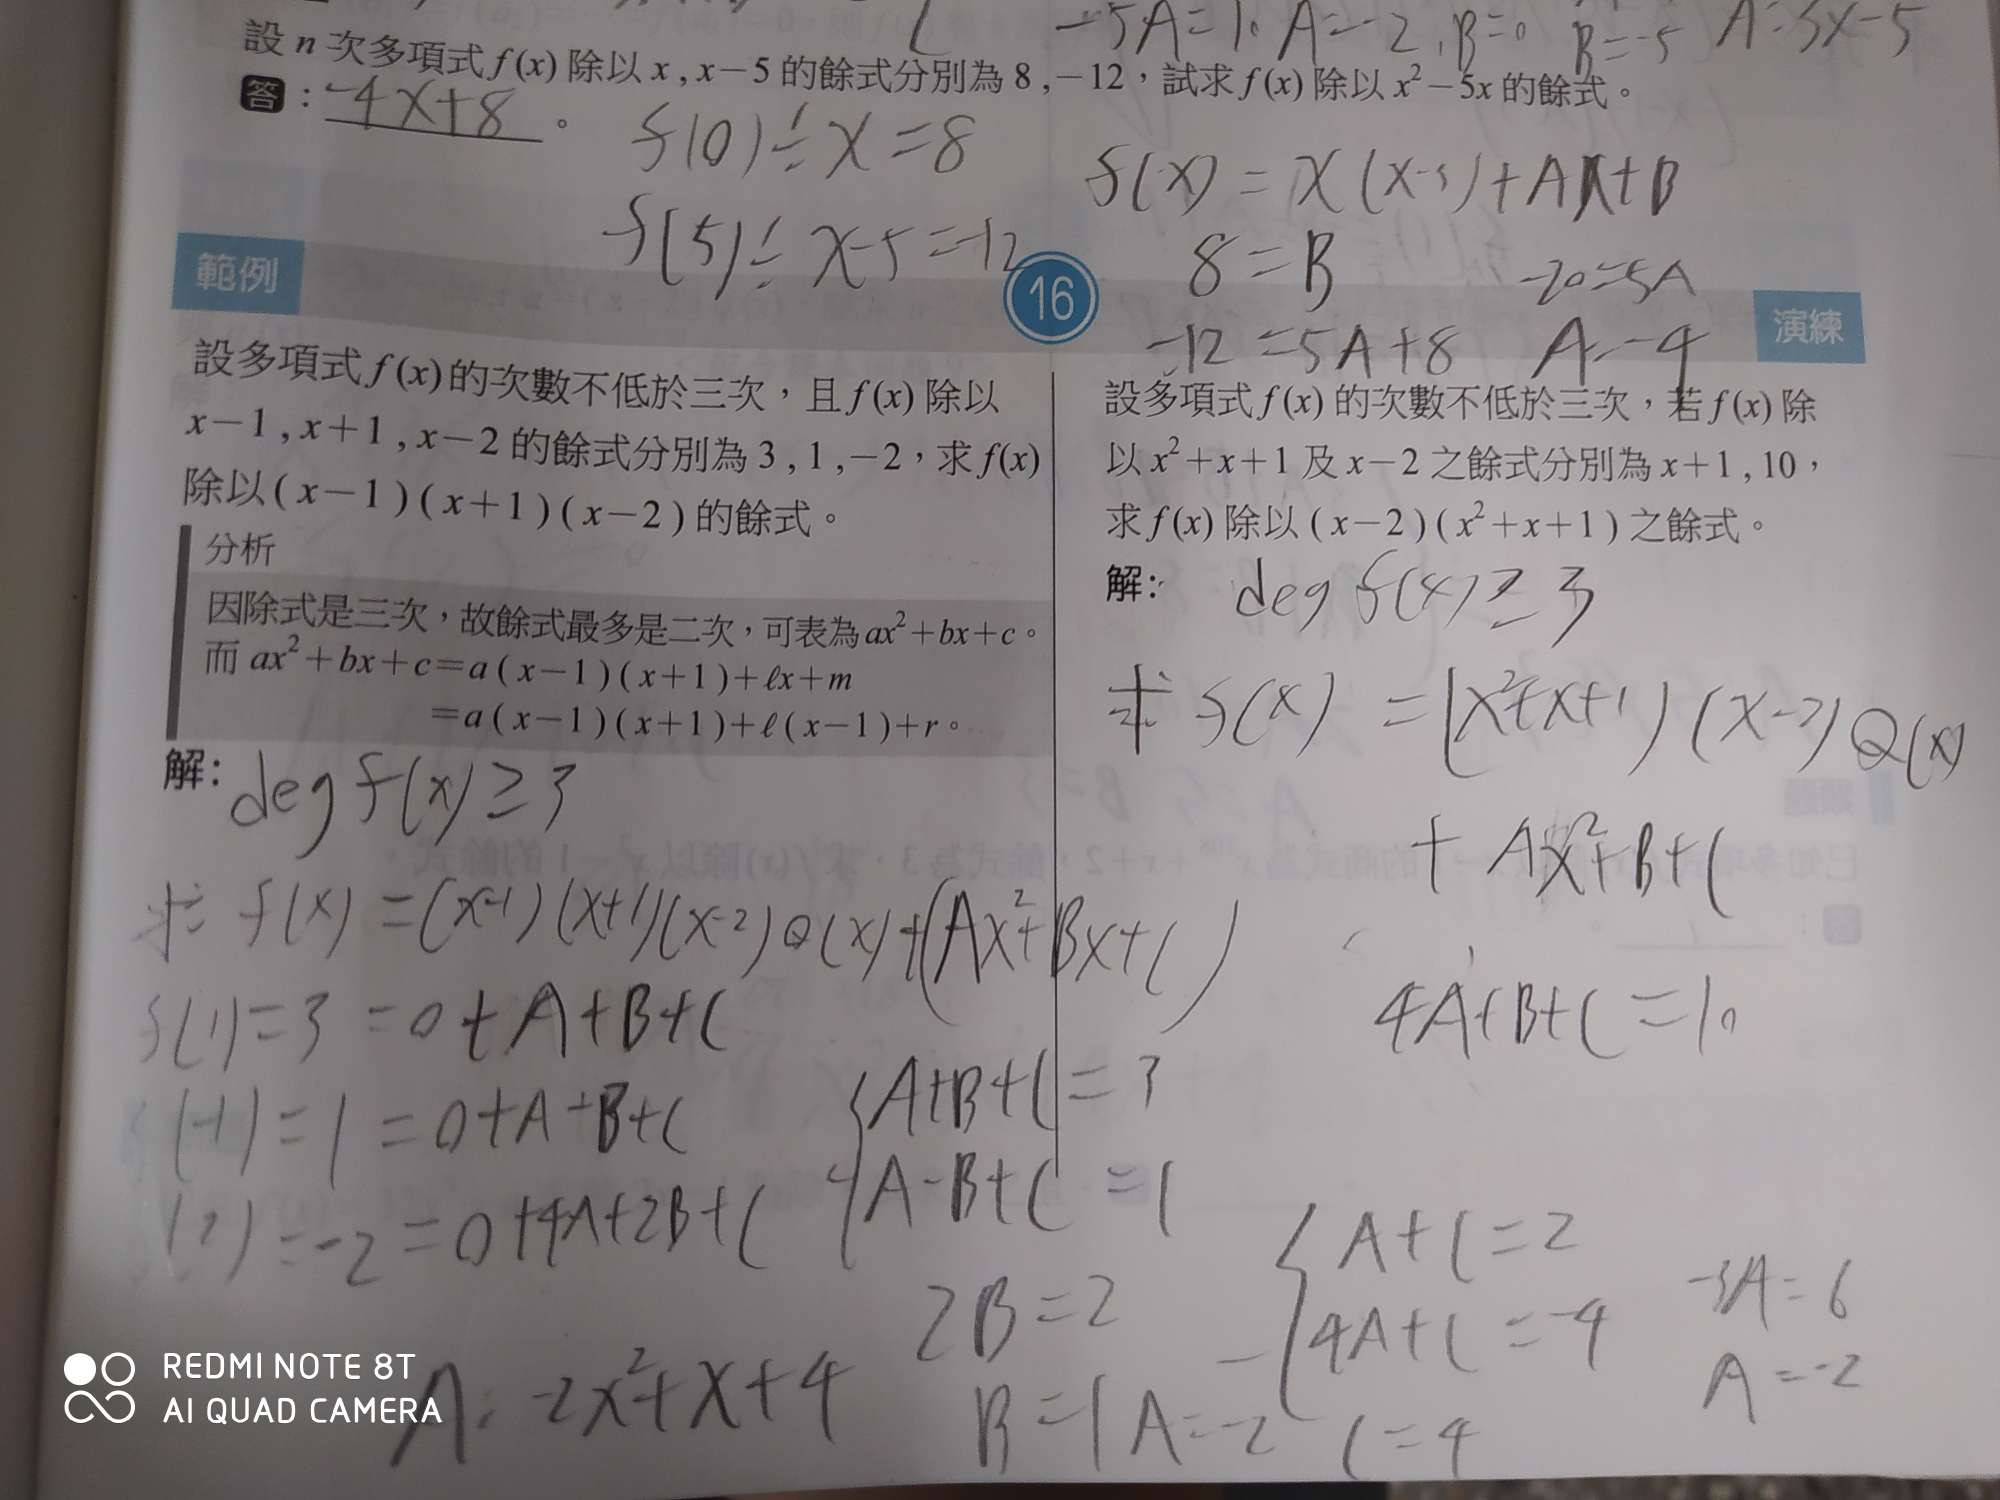 -5A=10 A=-2 B=0 B=-5 A=3x-5
設 n 次多項式 f(x) 除以 x , x-5 的餘式分別為 8 , -12,試求 f(x) 除以 x²-5x 的餘式。
答:-4x+8。
f(0)÷x=8
f(5)÷x-5=-12
f(x)=x(x-5)+Ax+B
8=B -20=5A
-12=5A+8 A=-4
範例
16
演練
設多項式 f(x) 的次數不低於三次,且 f(x) 除以
x-1 , x+1 , x-2 的餘式分別為 3 , 1 , -2,求 f(x)
除以 (x-1)(x+1)(x-2) 的餘式。
分析
因除式是三次,故餘式最多是二次,可表為 ax²+bx+c。
而 ax²+bx+c=a(x-1)(x+1)+ℓx+m
=a(x-1)(x+1)+ℓ(x-1)+r。
解:deg f(x)≥3
求 f(x)=(x-1)(x+1)(x-2)Q(x)+(Ax²+Bx+C)
f(1)=3=0+A+B+C
(-1)=1=0+A-B+C
(2)=-2=0+4A+2B+C
A+B+C=3
A-B+C=1
2B=2
B=1 A=-2 C=4
A+C=2
4A+C=-4
-3A=6
A=-2
A:-2x²+x+4
設多項式 f(x) 的次數不低於三次,若 f(x) 除
以 x²+x+1 及 x-2 之餘式分別為 x+1 , 10,
求 f(x) 除以 (x-2)(x²+x+1) 之餘式。
解: deg f(x)≥3
求 f(x)=(x²+x+1)(x-2)Q(x)
+Ax²+B+C
4A+B+C=10
REDMI NOTE 8T
AI QUAD CAMERA